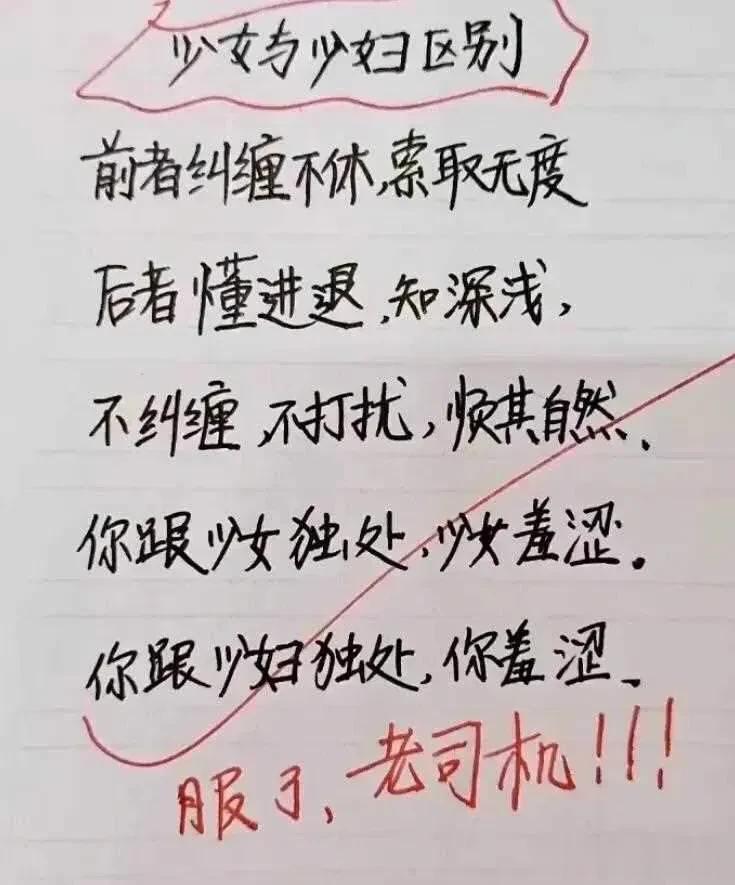 少女与少妇区别
前者纠缠不休,索取无度
后者懂进退,知深浅,
不纠缠,不打扰,顺其自然、
你跟少女独处,少女羞涩。
你跟少妇独处,你羞涩、
服了、老司机!!!